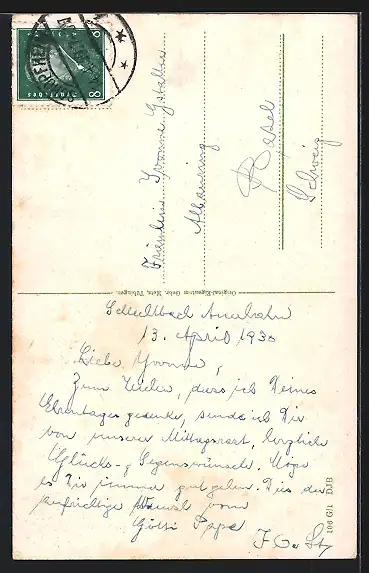 Fräulein Yvonne
Albanring
Basel
Schweiz
Original-Eigentum Gebr. Metz, Tübingen.
106 G/1 DJB
8 8
Deutsches
13. April 1930
Liebe Yvonne,
Zum Zeichen, dass ich Deines
Ehrentages gedenke, sende ich Dir
von unserer Mittagsrast, herzliche
Glücks- & Segenswünsche. Möge
es Dir immer gut gehen. Dies der
aufrichtige Wunsch vom
Götti Pape